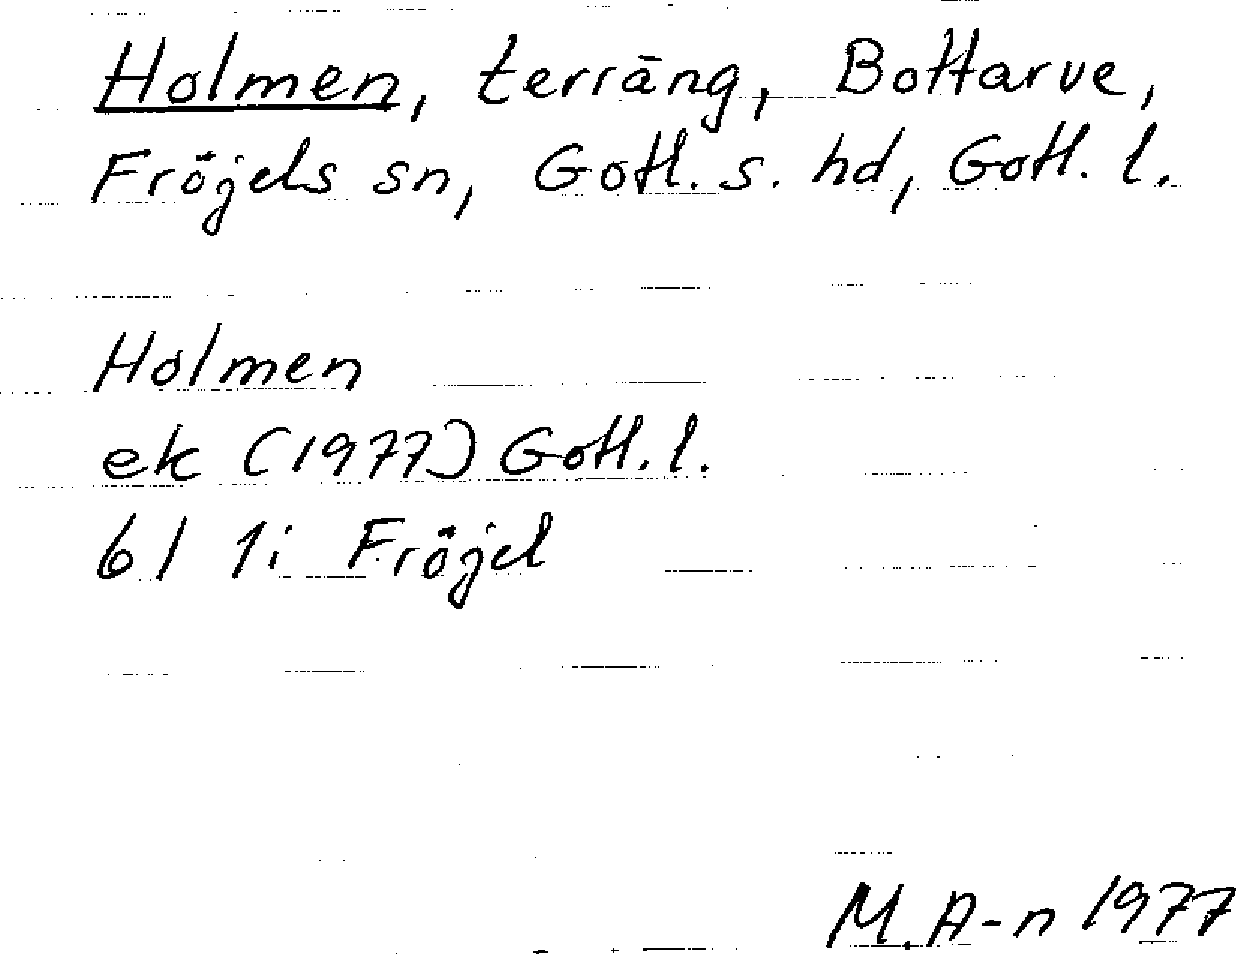 Holmen, terräng, Bottarve,
Fröjels sn, Gotl. s. hd, Gotl. l.
Holmen
ek (1977) Gotl. l.
6I 1i Fröjel
M. A-n 1977